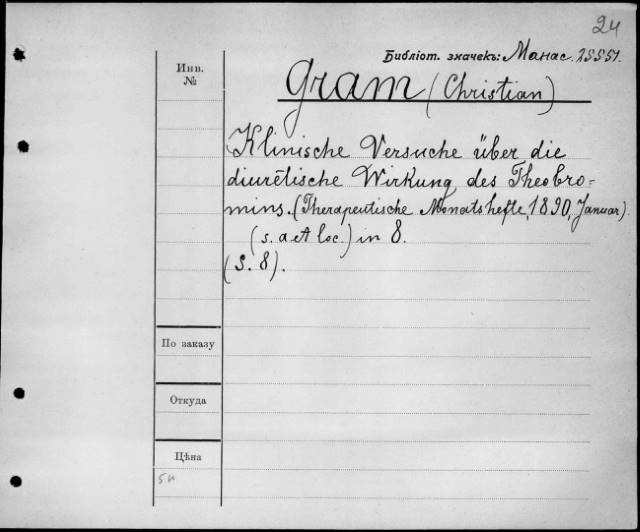 24
Библіот. значекъ: Манас. 25551.
Инв.
№
Gram (Christian)
Klinische Versuche über die
diurētische Wirkung des Theobro-
mins. (Therapeutische Monatshefte, 1890, Januar)
(s. a et loc.) in 8.
(S. 8).
По заказу
Откуда
Цѣна